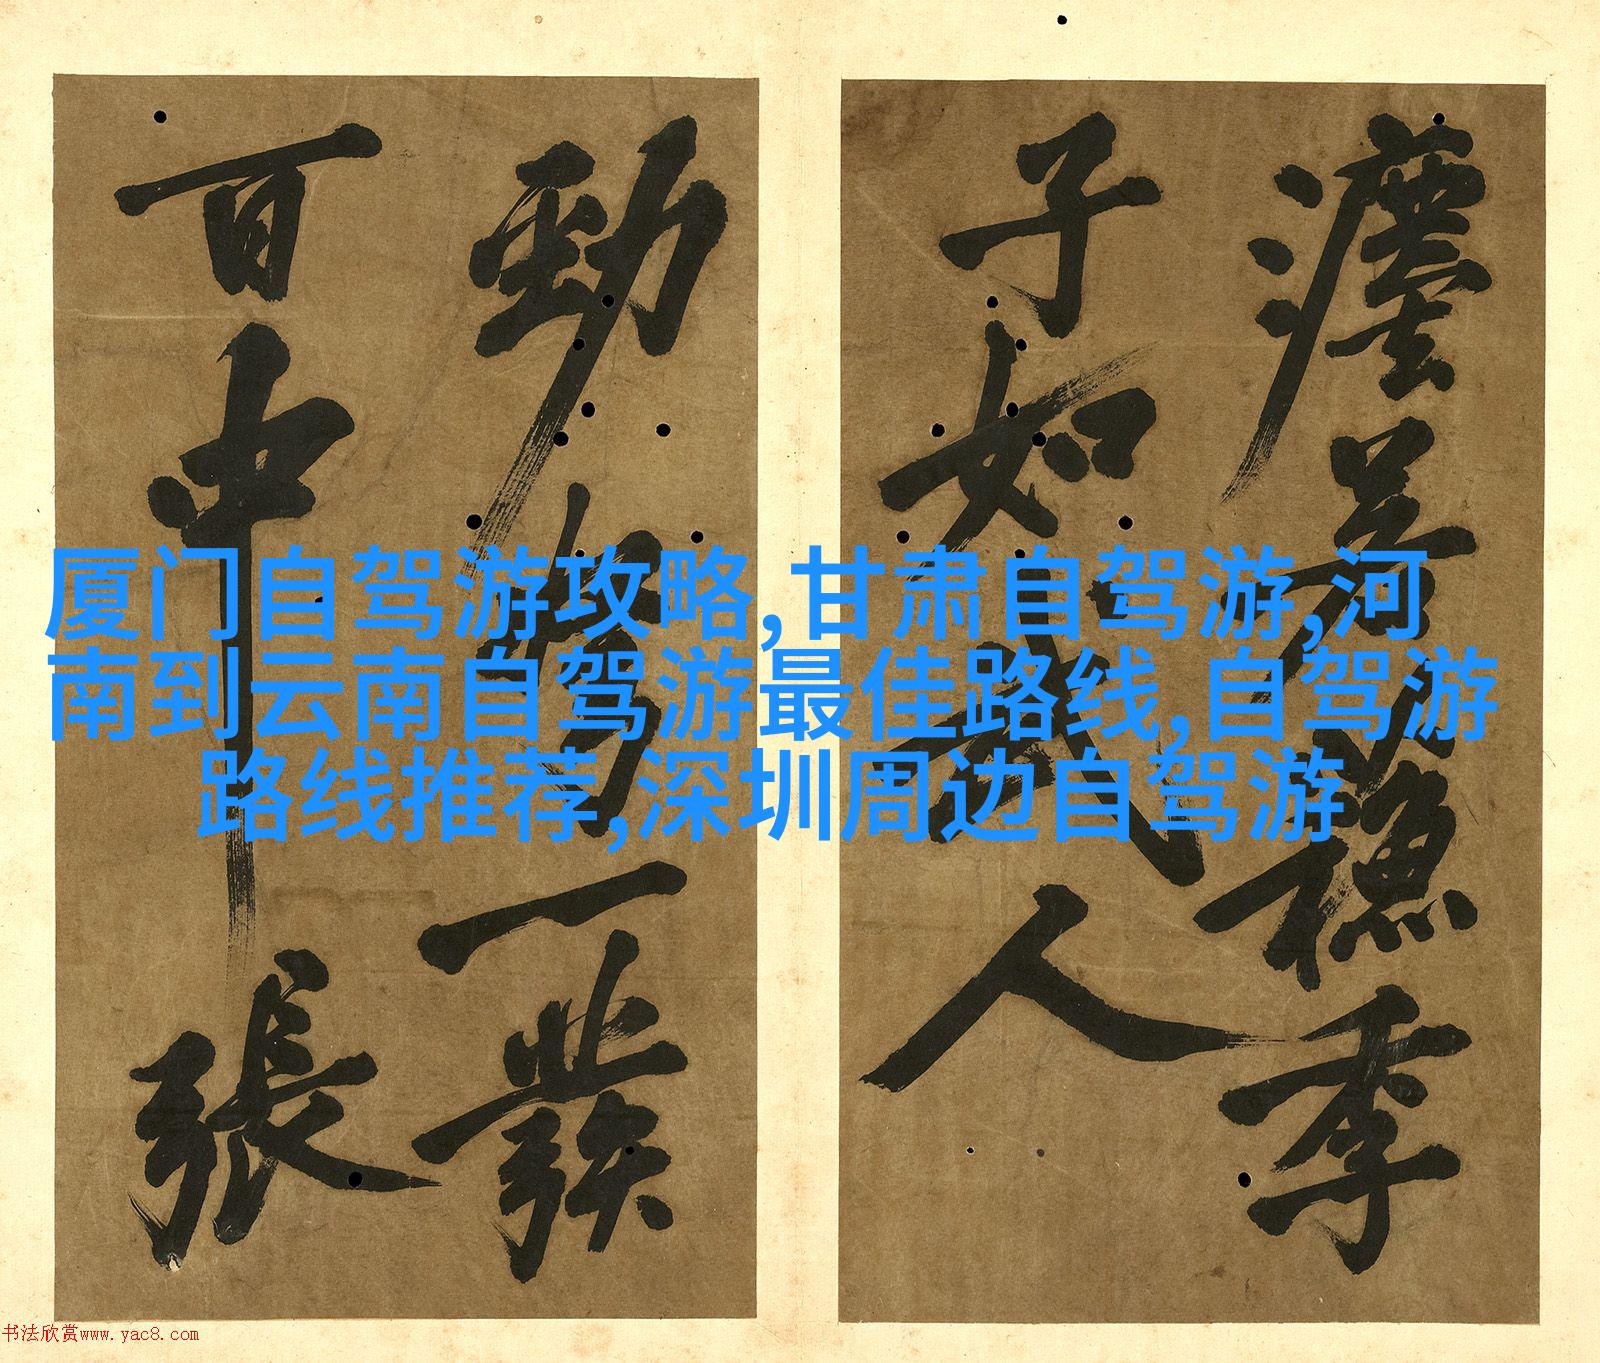 厦门自驾游攻略,甘肃自驾游,河
南到云南自驾游最佳路线,自驾游
路线推荐,深圳周边自驾游
季
子如武人
勁弩一發
百中張
书法欣赏www.yac8.com